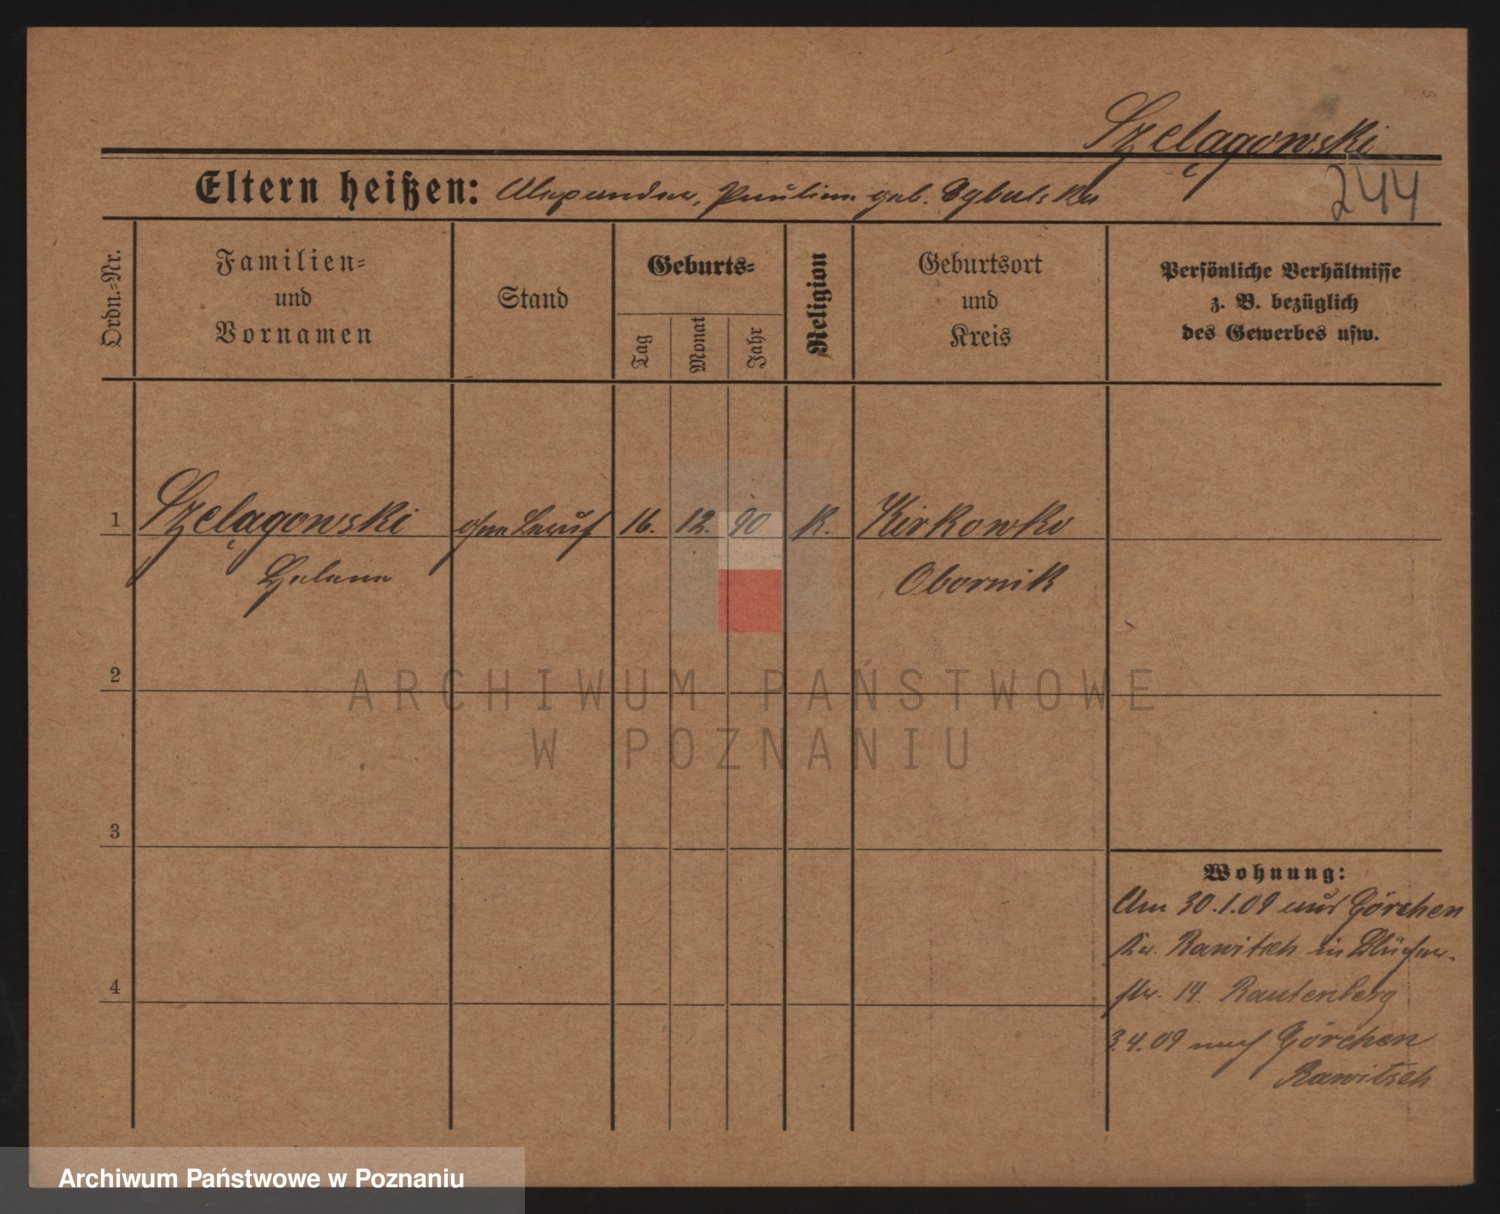 Szelągowski
244
Eltern heißen: Alexander, Paulina geb.
Ordn.-Nr.
Familien-
und
Vornamen
Stand
Geburts-
Tag
Monat
Jahr
Religion
Geburtsort
und
Kreis
Persönliche Verhältnisse
z. B. bezüglich
des Gewerbes usw.
1 Szelągowski ohne Beruf 16. 12. 90 K. Kirkowko
Helena Obornik
2
3
4
Wohnung:
Am 30.1.09 aus Görchen
Kr. Rawitsch in Blücher-
str. 14. Rautenberg
3.4.09 nach Görchen
Rawitsch
ARCHIWUM PAŃSTWOWE
W POZNANIU
Archiwum Państwowe w Poznaniu